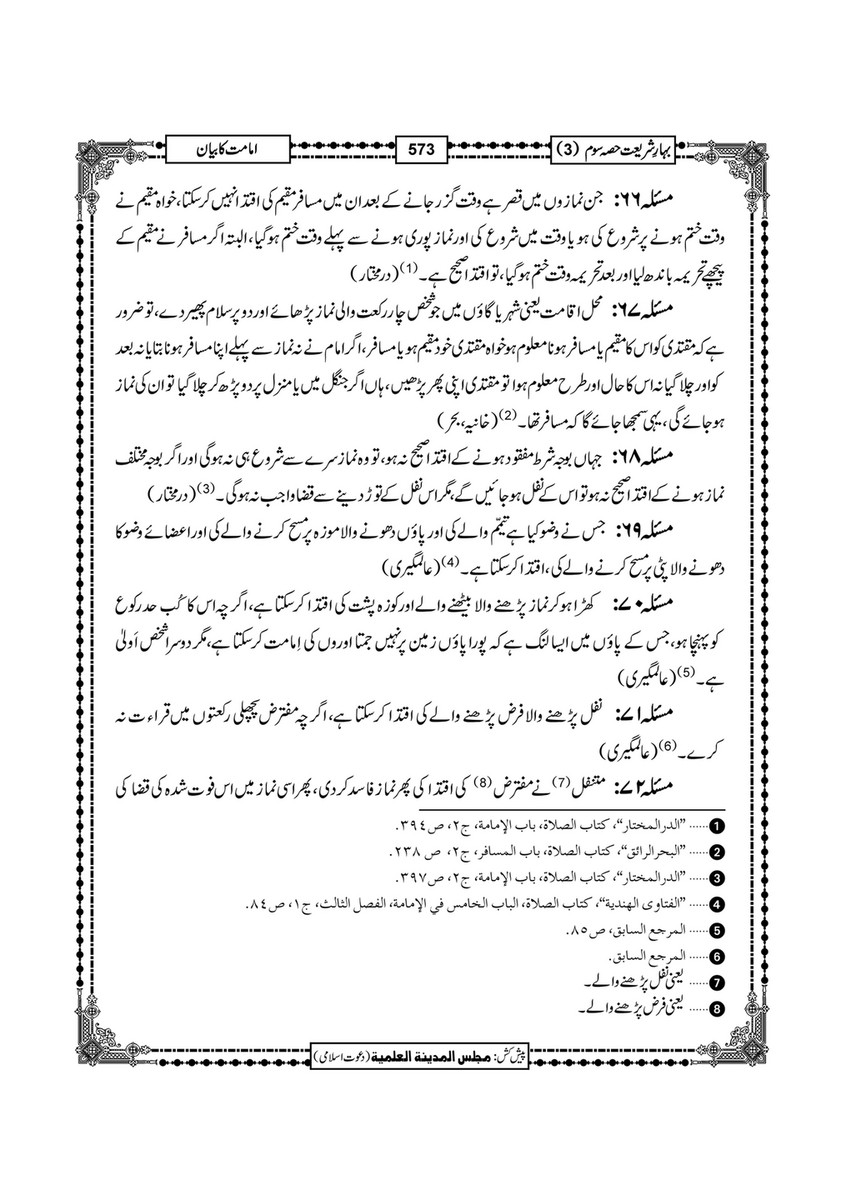 بہارِ شریعت حصہ سوم (3)
573
امامت کا بیان
مسئلہ ۶۶: جن نمازوں میں قصر ہے وقت گزر جانے کے بعد ان میں مسافر مقیم کی اقتدا نہیں کر سکتا، خواہ مقیم نے
وقت ختم ہونے پر شروع کی ہو یا وقت میں شروع کی اور نماز پوری ہونے سے پہلے وقت ختم ہوگیا، البتہ اگر مسافر نے مقیم کے
پیچھے تحریمہ باندھ لیا اور بعد تحریمہ وقت ختم ہوگیا، تو اقتدا صحیح ہے۔ (1) (درمختار)
مسئلہ ۶۷: محل اقامت یعنی شہر یا گاؤں میں جو شخص چار رکعت والی نماز پڑھائے اور دو پر سلام پھیر دے، تو ضرور
ہے کہ مقتدی کو اس کا مقیم یا مسافر ہونا معلوم ہو خواہ مقتدی خود مقیم ہو یا مسافر، اگر امام نے نہ نماز سے پہلے اپنا مسافر ہونا بتایا نہ بعد
کو اور چلا گیا نہ اس کا حال اور طرح معلوم ہوا تو مقتدی اپنی پھر پڑھیں، ہاں اگر جنگل میں یا منزل پر دو پڑھ کر چلا گیا تو ان کی نماز
ہو جائے گی، یہی سمجھا جائے گا کہ مسافر تھا۔ (2) (خانیہ، بحر)
مسئلہ ۶۸: جہاں بوجہ شرط مفقود ہونے کے اقتدا صحیح نہ ہو، تو وہ نماز سرے سے شروع ہی نہ ہوگی اور اگر بوجہ مختلف
نماز ہونے کے اقتدا صحیح نہ ہو تو اس کے نفل ہو جائیں گے، مگر اس نفل کے توڑ دینے سے قضا واجب نہ ہوگی۔ (3) (درمختار)
مسئلہ ۶۹: جس نے وضو کیا ہے تیمّم والے کی اور پاؤں دھونے والا موزہ پر مسح کرنے والے کی اور اعضائے وضو کا
دھونے والا پٹی پر مسح کرنے والے کی، اقتدا کر سکتا ہے۔ (4) (عالمگیری)
مسئلہ ۷۰: کھڑا ہو کر نماز پڑھنے والا بیٹھنے والے اور کوزہ پشت کی اقتدا کر سکتا ہے، اگرچہ اس کا کُب حد رکوع
کو پہنچا ہو، جس کے پاؤں میں ایسا لنگ ہے کہ پورا پاؤں زمین پر نہیں جمتا اوروں کی اِمامت کر سکتا ہے، مگر دوسرا شخص اَولیٰ
ہے۔ (5) (عالمگیری)
مسئلہ ۷۱: نفل پڑھنے والا فرض پڑھنے والے کی اقتدا کر سکتا ہے، اگرچہ مفترض پچھلی رکعتوں میں قراءت نہ
کرے۔ (6) (عالمگیری)
مسئلہ ۷۲: متنفل (7) نے مفترض (8) کی اقتدا کی پھر نماز فاسد کر دی، پھر اسی نماز میں اس فوت شدہ کی قضا کی
1 ...... "الدرالمختار"، كتاب الصلاة، باب الإمامة، ج٢، ص٣٩٤.
2 ...... "البحرالرائق"، كتاب الصلاة، باب المسافر، ج٢، ص ٢٣٨.
3 ...... "الدرالمختار"، كتاب الصلاة، باب الإمامة، ج٢، ص٣٩٧.
4 ...... "الفتاوى الهندية"، كتاب الصلاة، الباب الخامس في الإمامة، الفصل الثالث، ج١، ص٨٤.
5 ...... المرجع السابق، ص٨٥.
6 ...... المرجع السابق.
7 ...... یعنی نفل پڑھنے والے۔
8 ...... یعنی فرض پڑھنے والے۔
پیش کش: مجلس المدینة العلمیة (دعوت اسلامی)